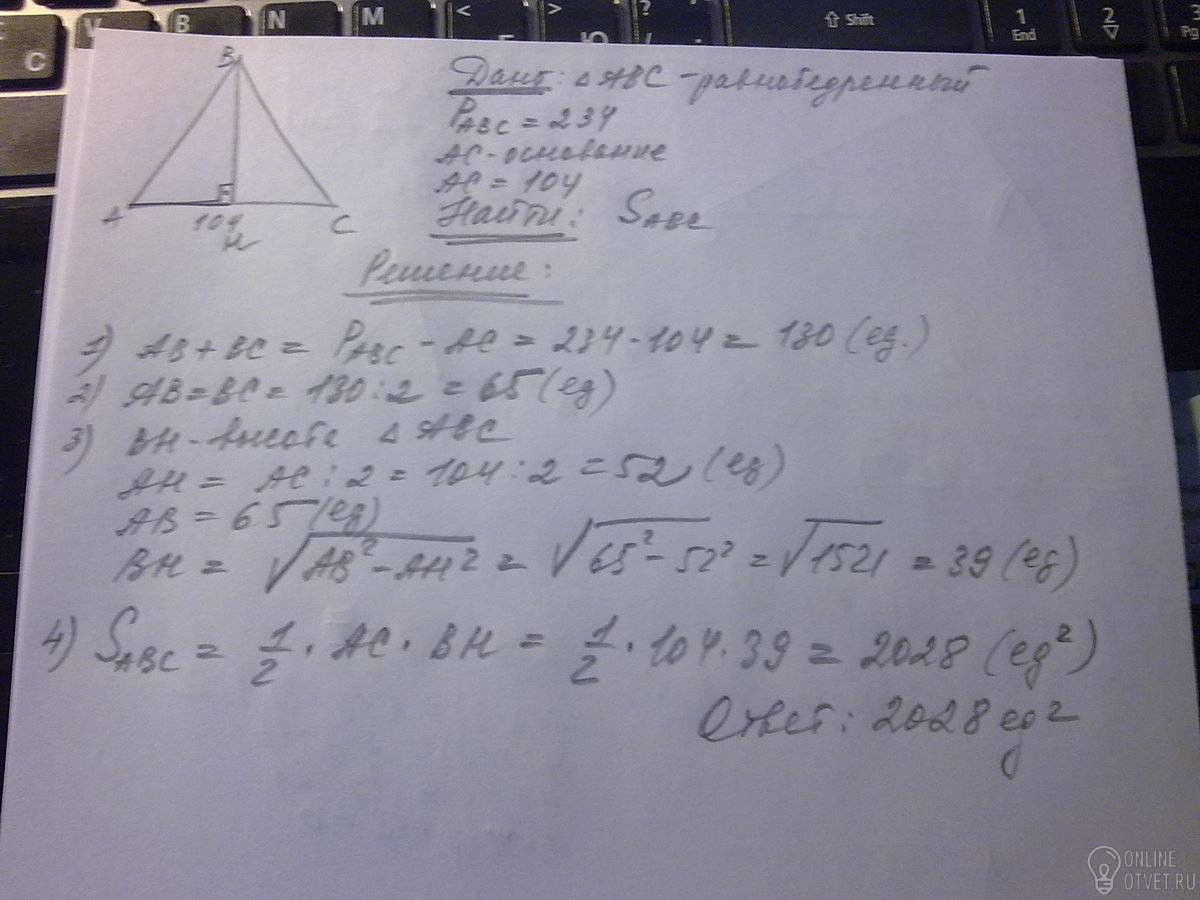 C
V
B
N
M
<
>
Ю
?
/
.
⇧ Shift
1
End
2
▽
3
Pg
B
A
104
H
C
Дано: △ABC - равнобедренный
P_ABC = 234
AC - основание
AC = 104
Найти: S_ABC
Решение:
1) AB + BC = P_ABC - AC = 234 - 104 = 130 (ед.)
2) AB = BC = 130 : 2 = 65 (ед)
3) BH - высота △ABC
AH = AC : 2 = 104 : 2 = 52 (ед)
AB = 65 (ед)
BH = √AB² - AH² = √65² - 52² = √1521 = 39 (ед)
4) S_ABC = 1/2 · AC · BH = 1/2 · 104 · 39 = 2028 (ед²)
Ответ: 2028 ед²
ONLINE
OTVET.RU